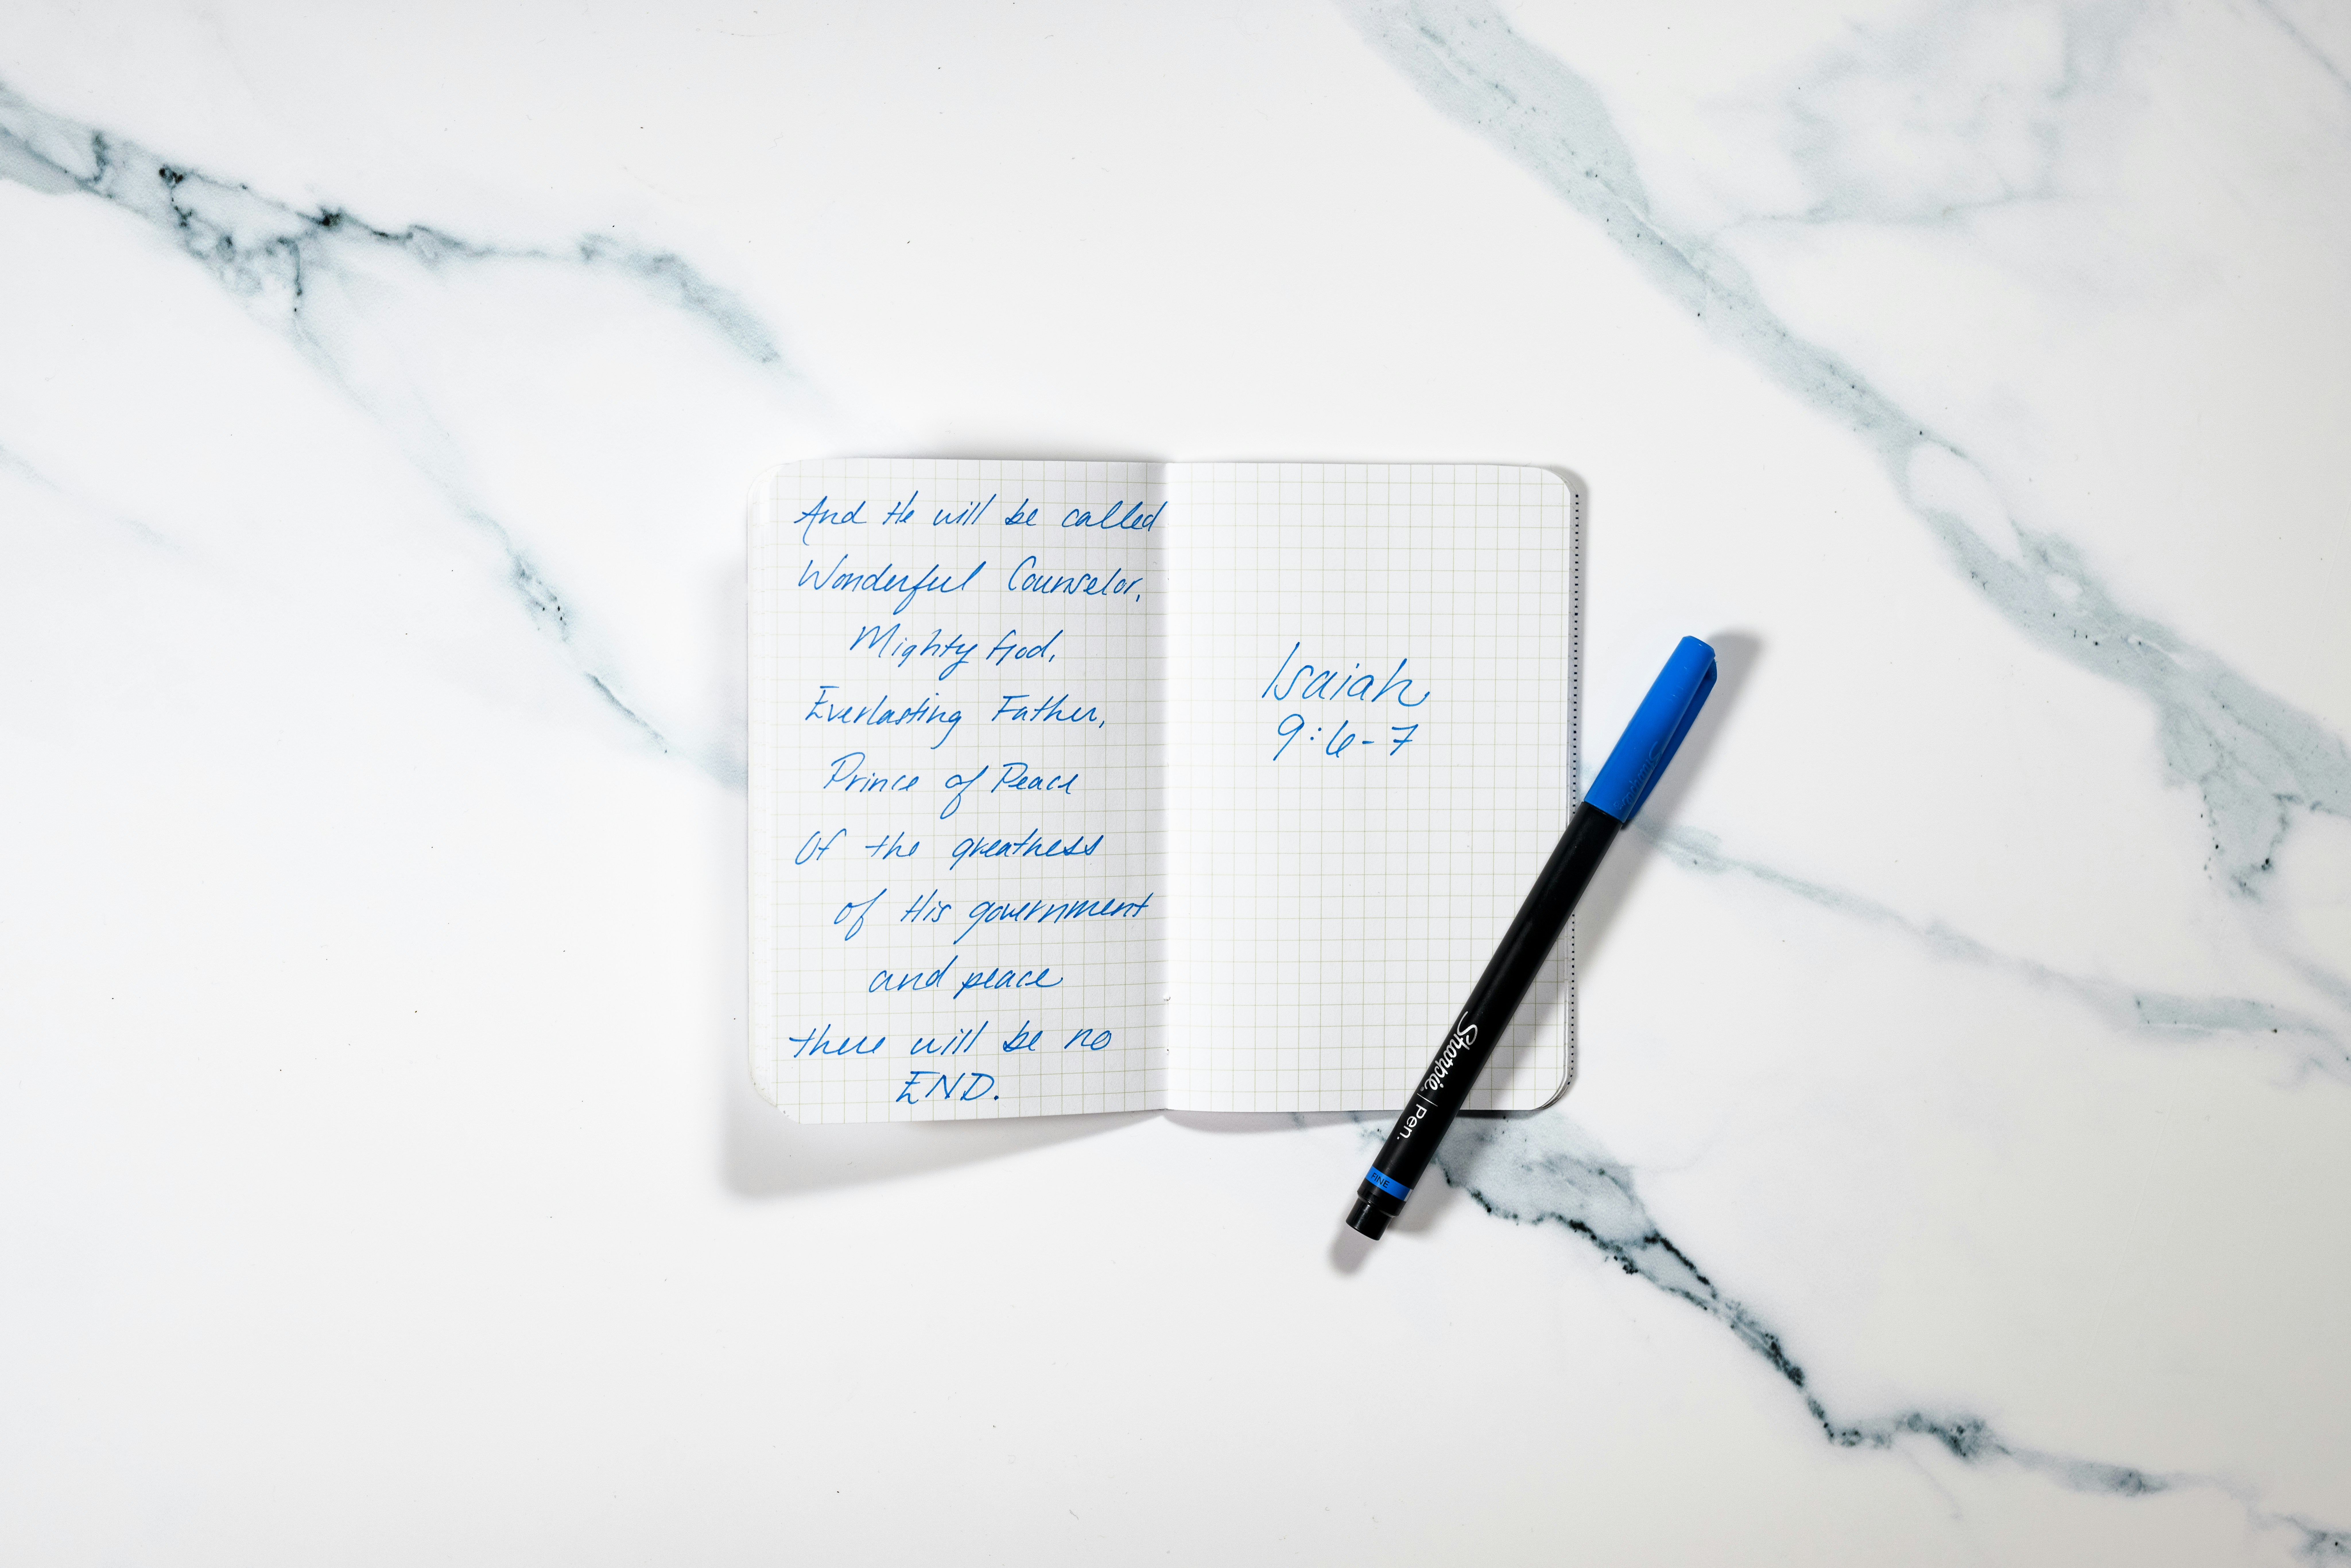 And He will be called
Wonderful Counselor,
Mighty God,
Everlasting Father,
Prince of Peace
Of the greatness
of His government
and peace
there will be no
END.
Isaiah
9:6-7
Sharpie | Pen.
FINE